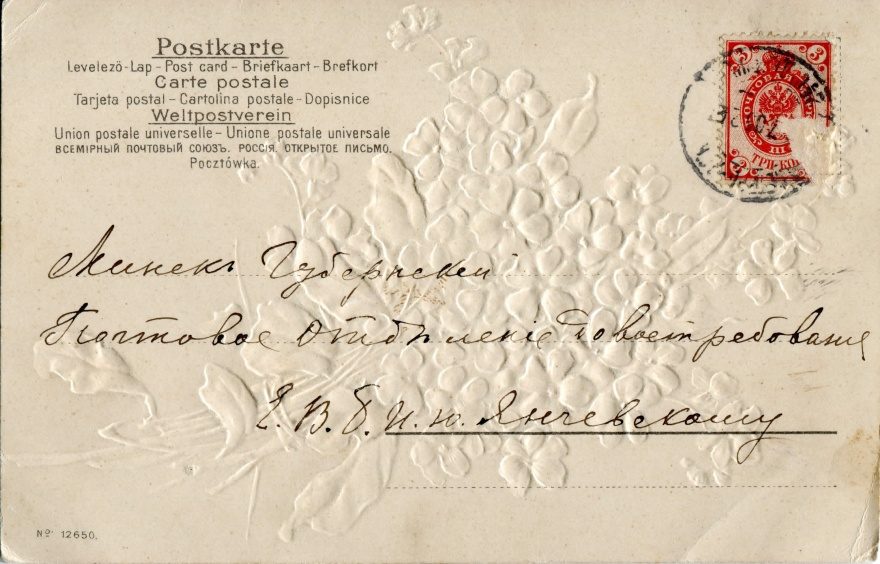 Postkarte
Levelezö-Lap - Post card - Briefkaart - Brefkort
Carte postale
Tarjeta postal - Cartolina postale - Dopisnice
Weltpostverein
Union postale universelle - Unione postale universale
ВСЕМІРНЫЙ ПОЧТОВЫЙ СОЮЗЪ. РОССІЯ. ОТКРЫТОЕ ПИСЬМО.
Pocztówka.
3 3
ПОЧТОВАЯ
3 ТРИ КО
Минскъ Губернскій
Почтовое отдѣленіе Довостребованія
Е. В. Б. И. Ю. Янчевскому
No. 12650.